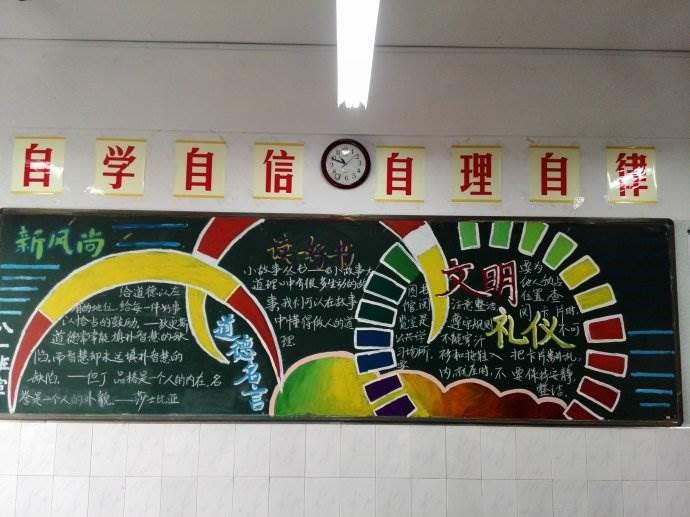 自学自信自理自律
新风尚
给道德以左
的地位,给每一件好事
以恰当的鼓励。——狄更斯
道德常常能填补智慧的缺
陷,而智慧却永远填补不了道德的
缺陷。——但丁 品格是一个人的内在,名
誉是一个人的外貌。——莎士比亚
道德名言
读好书
小故事
道理 中有很多生动的故
事,我们可以在故事
中懂得做人的道
理
文明
礼仪
图书
馆,阅
览室是
公共学
习场所,
注意整洁,
遵守规则
不能穿汗
衫和拖鞋入
内,就座时,不
要为
他人预占
位置,查
阅卡片时,
不可
把卡片翻乱。
要保持安静、
整洁
八一班宣